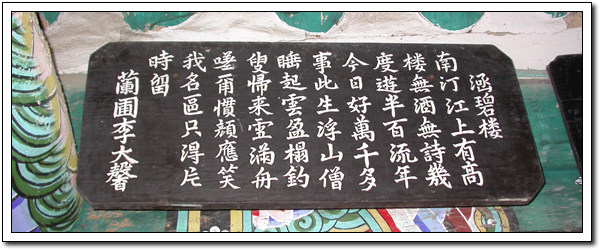 涵碧楼
南汀江上有高
楼無酒無詩幾
度遊半百流年
今日好萬千多
事此生浮山僧
睡起雲盈榻釣
叟帰来雪滿舟
嗟爾慣顔應笑
我名區只得片
時留
蘭圃李大馨